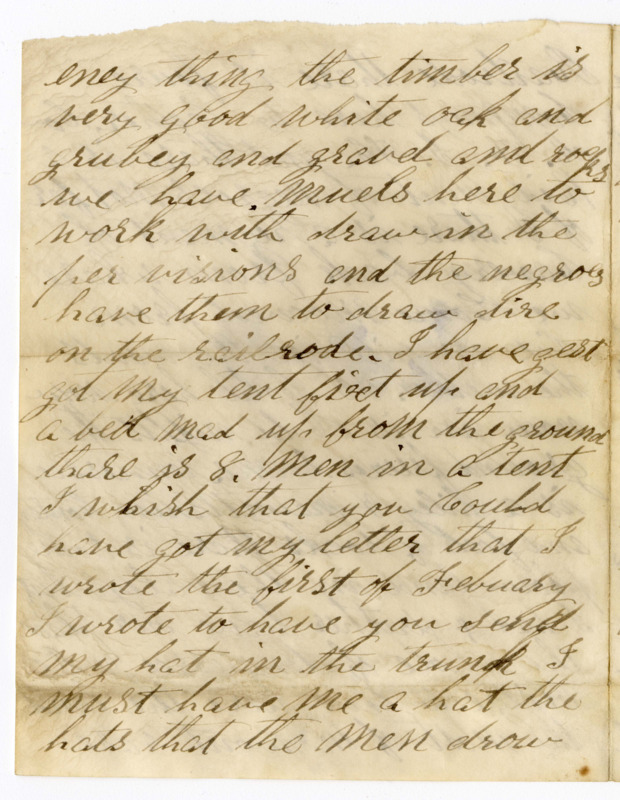 eney thing the timber is
very good white oak and
grubey and gravel and rocks
we have muels here to
work with draw in the
per visions and the negroes
have them to draw dire
on the reilrode. I have gest
got my tent fixt up and
a bed mad up from the ground
thare is 8. men in a tent
I whish that you Could
have got my letter that I
wrote the first of Febuary
I wrote to have you send
my hat in the trunk I
must have me a hat the
hats that the men drow